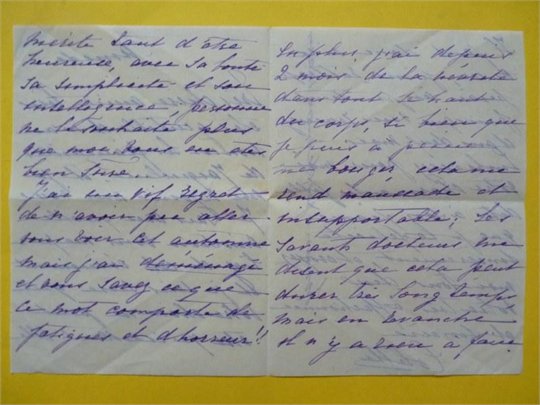 mérite tant d'être
heureuse, avec sa
sa simplicité et son
intelligence, personne
ne le souhaite plus
que moi, vous en êtes
bien sûre.
J'ai un vif regret
de n'avoir pas aller
vous voir cet automne
mais j'ai déménagé
et vous savez ce que
ce mot comporte de
fatigues et d'horreur!!
En plus, j'ai depuis
2 mois de la
dans tout le haut
du corps, si bien que
je puis à peine
me bouger, cela me
rend maussade et
insupportable; les
savants docteurs me
disent que cela peut
durer très longtemps
mais en revanche
il n'y a rien à faire